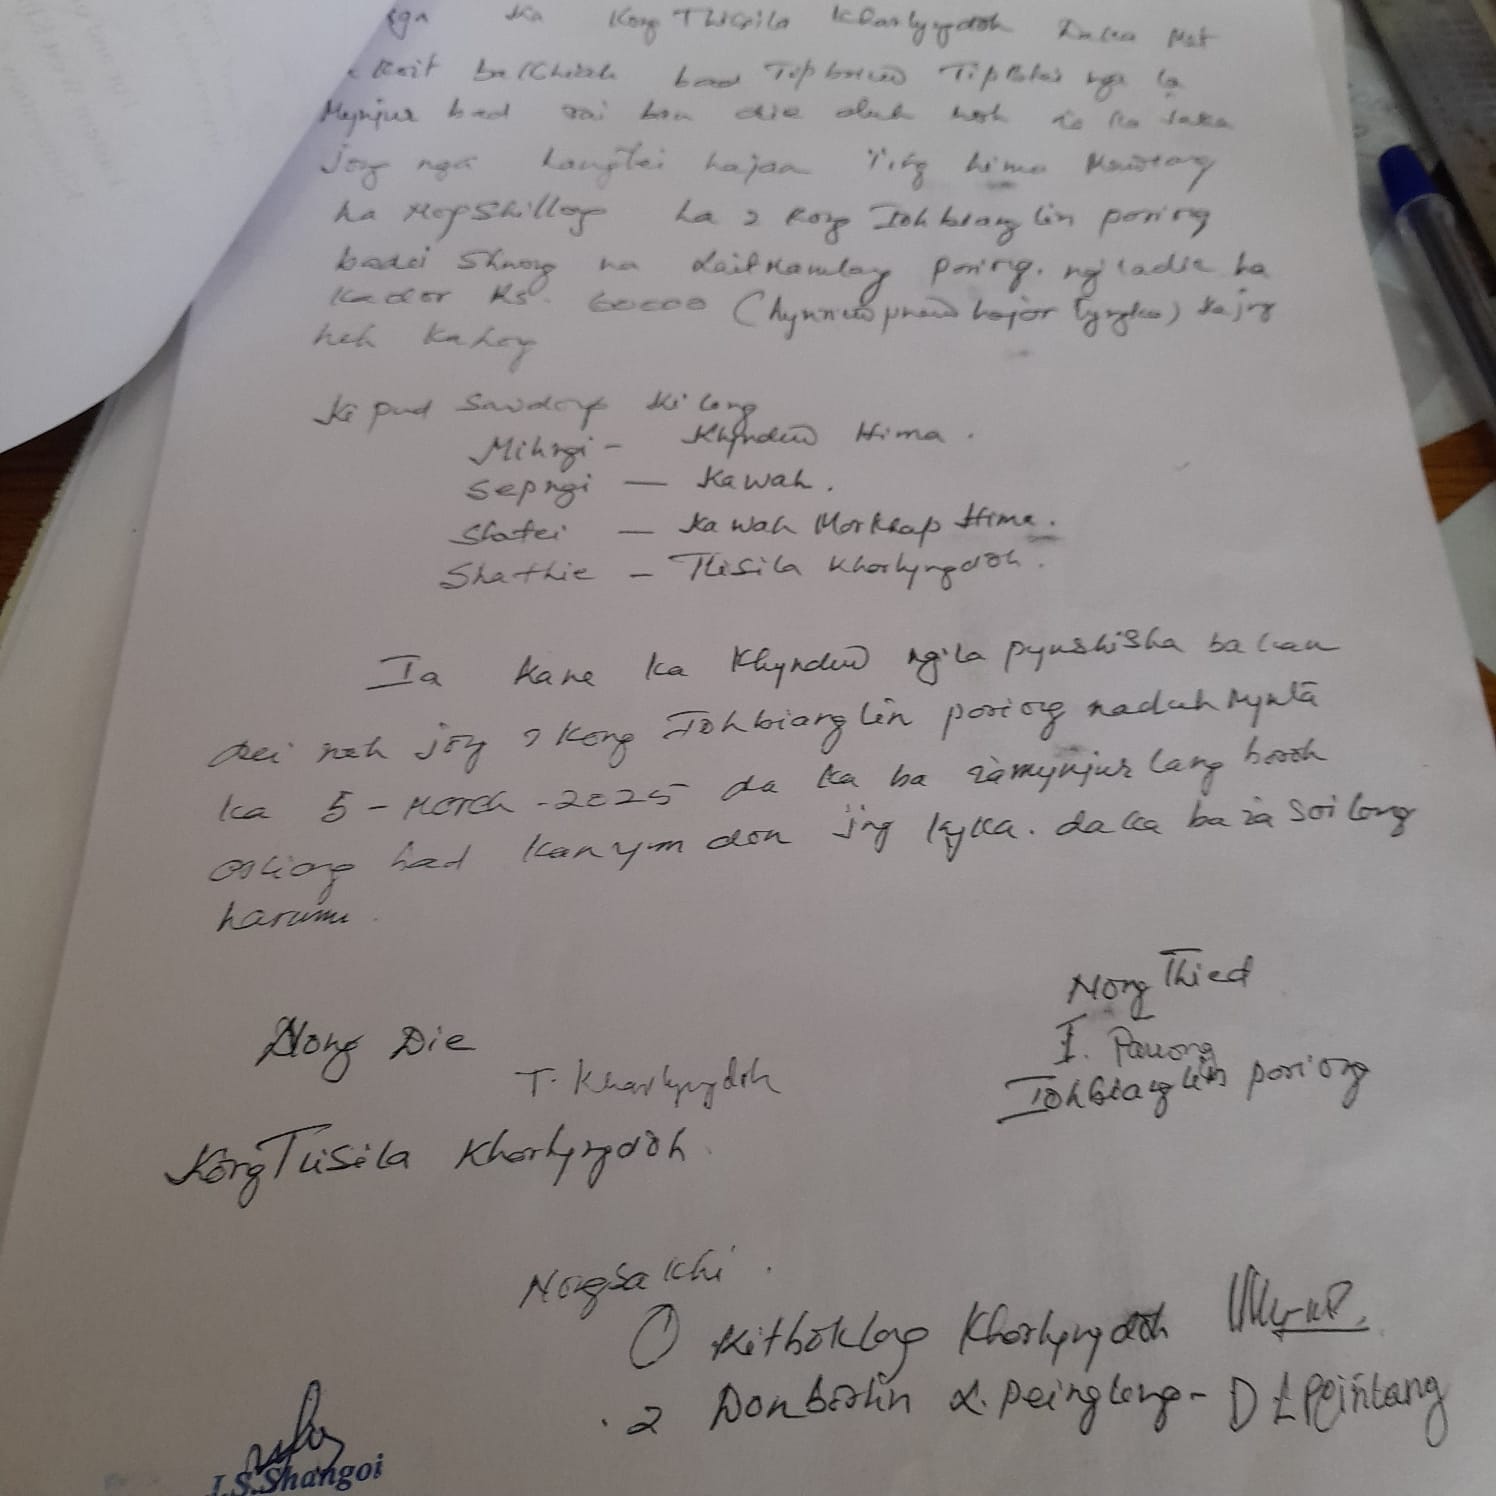 nga ka Kong Thisila Kharlyngdoh Dalka Met
Rait ba Khiah bad Tip briew Tip Blei nga la
Mynjur bad rai ban die duh noh ia ka Jaka
jong nga hajan Ïing hima
ha Mop Shillong ha I Kong Iohbianglin poriong
badei Shnong na Laitkamlang poriong. ngi ladie ha
Kador Rs. 60000 (hynriew phew hajar tyngka) ka jng
heh kahoy
Ki pud Sawdong ki long
Mihngi - Khyndew Hima.
Sepngi — Ka wah.
Shatei — Ka wah Morkhap Hima.
Shathie — Tlisila Kharlyngdoh.
Ia Kane ka Khyndew ngi la pynshisha ba kan
dei noh jong I Kong Iohbianglin poriong naduh mynta
ka 5 - March - 2025 da ka ba iamynjur lang baroh
arliang bad kan ym don jing kylla. da ka ba ia Soi lang
harum.
Nong Thied
Nong Die
I. Pariong
T. Kharlyngdoh
Iohbianglin poriong
Kong Tlisila Kharlyngdoh.
Nongsakhi.
① Kitboklang Kharlyngdoh
2 Donborlin L. peinglang - D L Peinlang
J.S.Shangoi